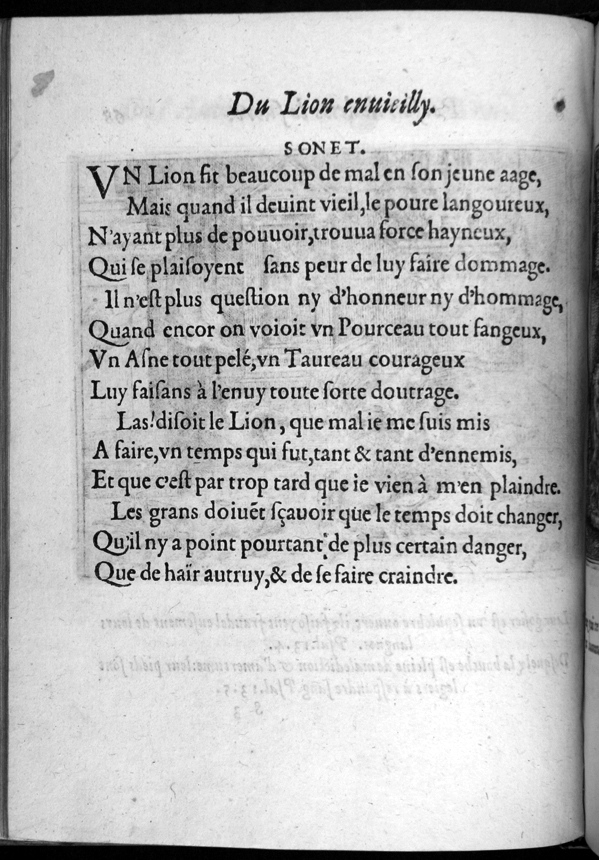 Du Lion enuieilly.
SONET.
VN Lion fit beaucoup de mal en ſon jeune aage,
Mais quand il deuint vieil, le poure langoureux,
N'ayant plus de pouuoir, trouua force hayneux,
Qui ſe plaiſoyent ſans peur de luy faire dommage.
Il n'eſt plus queſtion ny d'honneur ny d'hommage,
Quand encor on voioit vn Pourceau tout fangeux,
Vn Aſne tout pelé, vn Taureau courageux
Luy faiſans à l'enuy toute ſorte doutrage.
Las! diſoit le Lion, que mal ie me ſuis mis
A faire, vn temps qui fut, tant & tant d'ennemis,
Et que c'eſt par trop tard que ie vien à m'en plaindre.
Les grans doiuēt ſçauoir que le temps doit changer,
Qu'il ny a point pourtant de plus certain danger,
Que de haïr autruy, & de ſe faire craindre.